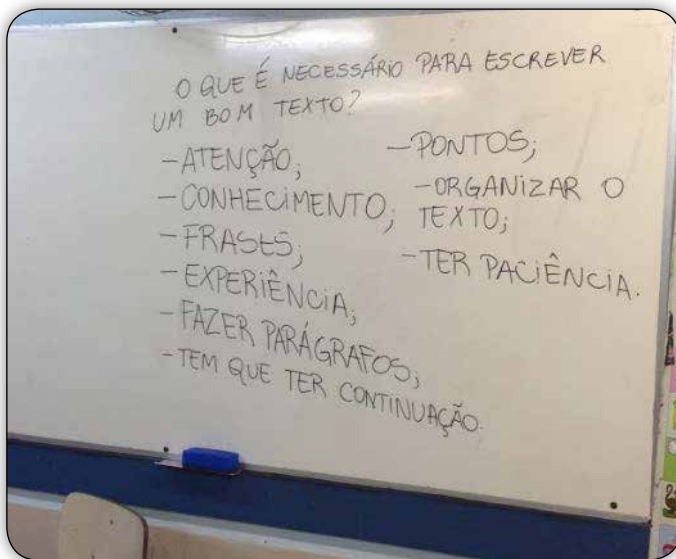 O QUE É NECESSÁRIO PARA ESCREVER
UM BOM TEXTO?
-ATENÇÃO;
-CONHECIMENTO;
-FRASES;
-EXPERIÊNCIA;
-FAZER PARÁGRAFOS;
-TEM QUE TER CONTINUAÇÃO.
-PONTOS;
-ORGANIZAR O
TEXTO;
-TER PACIÊNCIA.